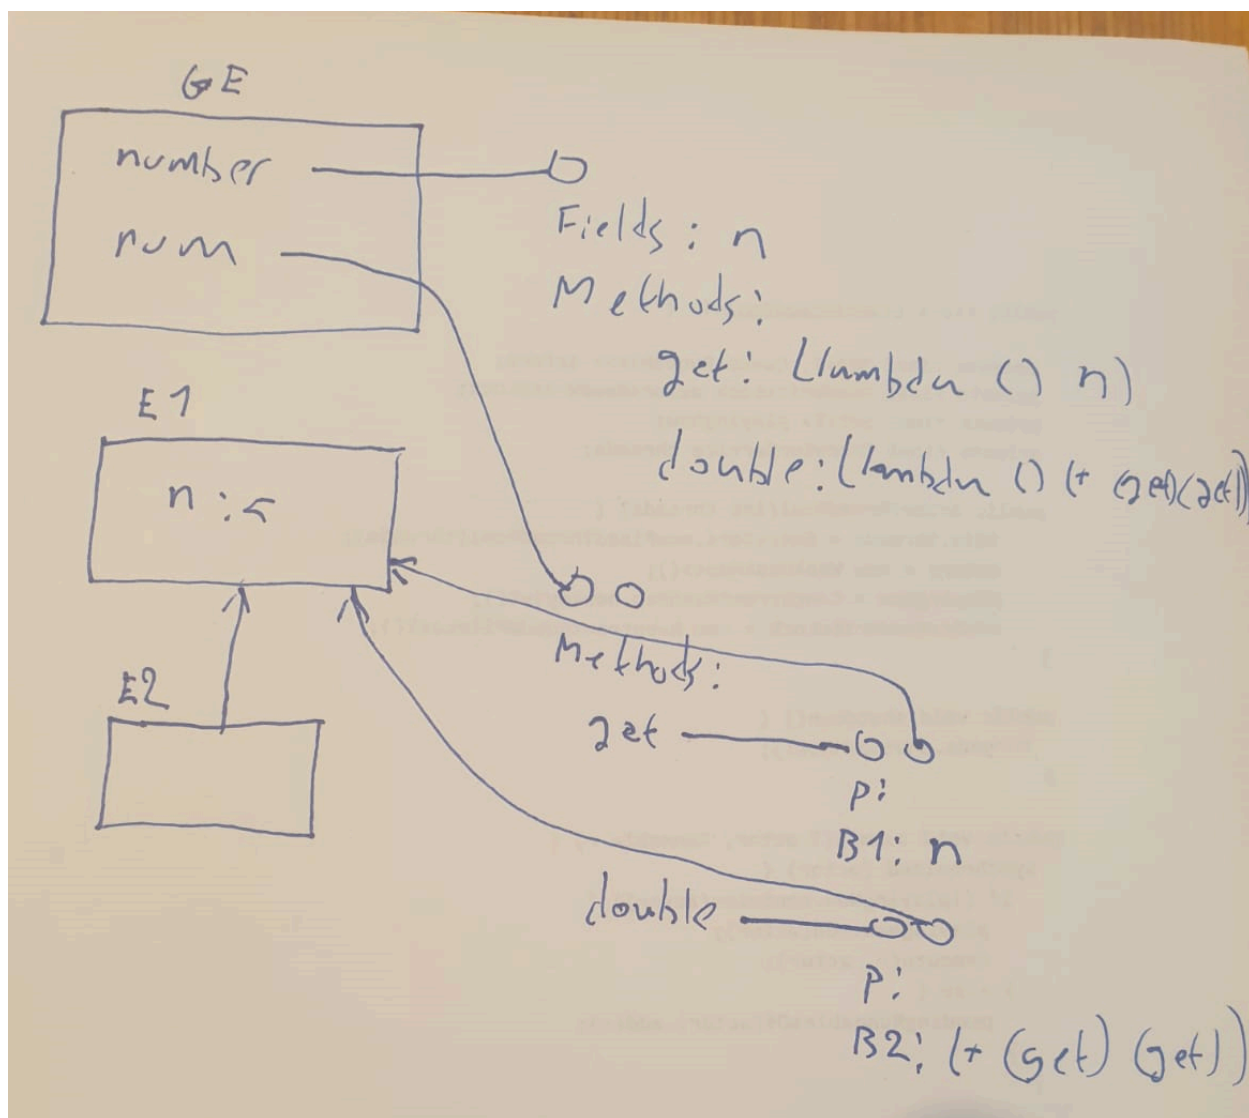 GE
number
num
Fields: n
Methods:
get: (lambda () n)
double: (lambda () (+ (get)(get))
E1
n : 5
E2
Methods:
get
P:
B1: n
double
P:
B2: (+ (get) (get))